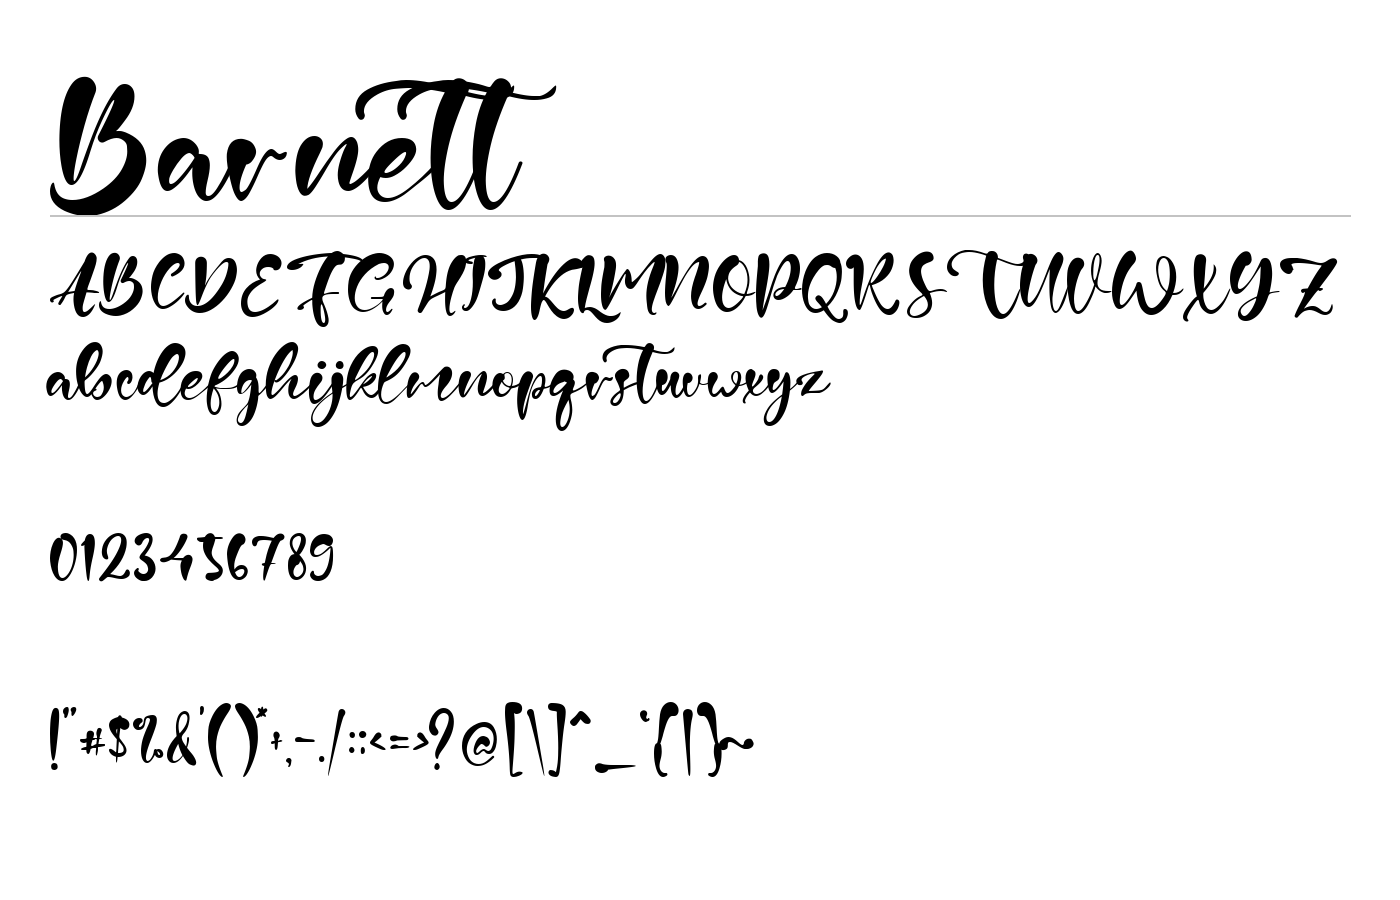 Barnett
ABCDEFGHIJKLMNOPQRSTUVWXYZ
abcdefghijklmnopqrstuvwxyz
0123456789
!"#$%&'()*+,-./:;<=>?@[\]^_`{|}~